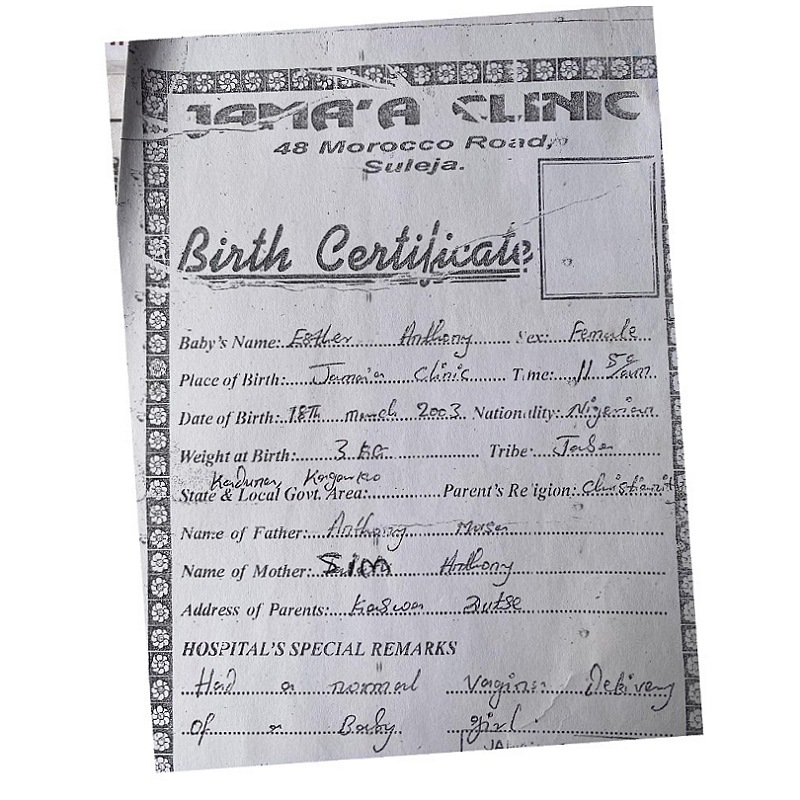 JAMA'A CLINIC
48 Morocco Road,
Suleja.
Birth Certificate
Baby's Name: Esther Anthony Sex: Female
Place of Birth: Jama'a Clinic Time: 11 50 am
Date of Birth: 18th march 2003 Nationality: Nigerian
Weight at Birth: 3 KG Tribe: Jaba
Kaduna, Kagarko
State & Local Govt. Area: Parent's Religion: Christianity
Name of Father: Anthony Musa
Name of Mother: Anthony
Address of Parents: Kaswa Dutse
HOSPITAL'S SPECIAL REMARKS
Had a normal Vaginal Delivery
Of a Baby girl